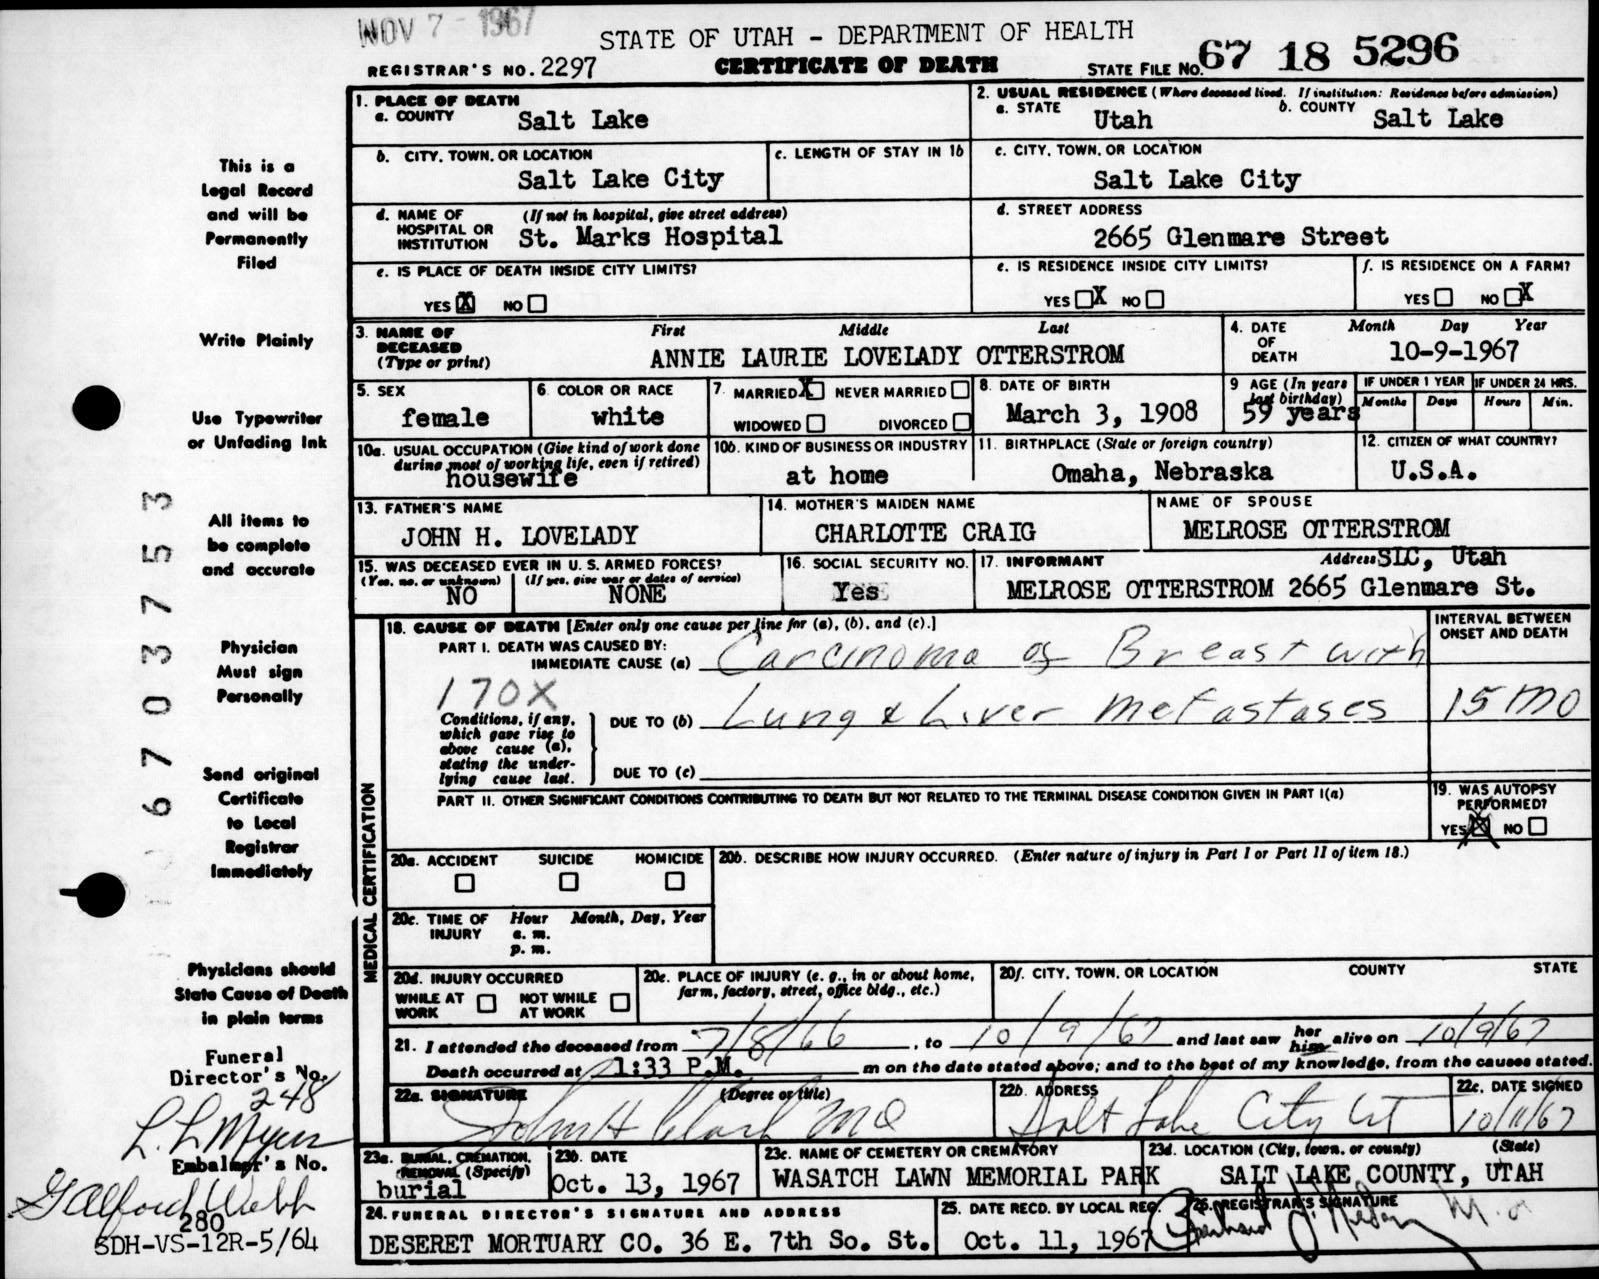 NOV 7 - 1967
STATE OF UTAH - DEPARTMENT OF HEALTH
REGISTRAR'S NO. 2297
CERTIFICATE OF DEATH
STATE FILE NO. 67 18 5296
This is a
Legal Record
and will be
Permanently
Filed
Write Plainly
Use Typewriter
or Unfading Ink
All items to
be complete
and accurate
Physician
Must sign
Personally
Send original
Certificate
to Local
Registrar
Immediately
Physicians should
State Cause of Death
in plain terms
Funeral
Director's No.
248
L. L. Myers
Embalmer's No.
Galford Webb
280
SDH-VS-12R-5/64
67037533
1. PLACE OF DEATH
a. COUNTY Salt Lake
2. USUAL RESIDENCE (Where deceased lived. If institution: Residence before admission)
a. STATE Utah b. COUNTY Salt Lake
b. CITY, TOWN, OR LOCATION Salt Lake City
c. LENGTH OF STAY IN 1b
c. CITY, TOWN, OR LOCATION
Salt Lake City
d. NAME OF HOSPITAL OR INSTITUTION (If not in hospital, give street address)
St. Marks Hospital
d. STREET ADDRESS
2665 Glenmare Street
e. IS PLACE OF DEATH INSIDE CITY LIMITS?
YES X NO
e. IS RESIDENCE INSIDE CITY LIMITS?
YES X NO
f. IS RESIDENCE ON A FARM?
YES NO X
3. NAME OF DECEASED (Type or print) First Middle Last
ANNIE LAURIE LOVELADY OTTERSTROM
4. DATE OF DEATH Month Day Year
10-9-1967
5. SEX
female
6. COLOR OR RACE
white
7. MARRIED X NEVER MARRIED
WIDOWED DIVORCED
8. DATE OF BIRTH
March 3, 1908
9 AGE (In years last birthday)
59 years
IF UNDER 1 YEAR
Months Days
IF UNDER 24 HRS.
Hours Min.
10a. USUAL OCCUPATION (Give kind of work done during most of working life, even if retired)
housewife
10b. KIND OF BUSINESS OR INDUSTRY
at home
11. BIRTHPLACE (State or foreign country)
Omaha, Nebraska
12. CITIZEN OF WHAT COUNTRY?
U.S.A.
13. FATHER'S NAME
JOHN H. LOVELADY
14. MOTHER'S MAIDEN NAME
CHARLOTTE CRAIG
NAME OF SPOUSE
MELROSE OTTERSTROM
15. WAS DECEASED EVER IN U. S. ARMED FORCES?
(Yes, no, or unknown) (If yes, give war or dates of service)
NO NONE
16. SOCIAL SECURITY NO.
Yes
17. INFORMANT Address SLC, Utah
MELROSE OTTERSTROM 2665 Glenmare St.
MEDICAL CERTIFICATION
18. CAUSE OF DEATH [Enter only one cause per line for (a), (b), and (c).]
INTERVAL BETWEEN ONSET AND DEATH
PART I. DEATH WAS CAUSED BY:
IMMEDIATE CAUSE (a) Carcinoma of Breast with
170X
Conditions, if any, which gave rise to above cause (a), stating the underlying cause last.
DUE TO (b) Lung & Liver Metastases 15 mo
DUE TO (c)
PART II. OTHER SIGNIFICANT CONDITIONS CONTRIBUTING TO DEATH BUT NOT RELATED TO THE TERMINAL DISEASE CONDITION GIVEN IN PART I(a)
19. WAS AUTOPSY PERFORMED?
YES X NO
20a. ACCIDENT SUICIDE HOMICIDE
20b. DESCRIBE HOW INJURY OCCURRED. (Enter nature of injury in Part I or Part II of item 18.)
20c. TIME OF INJURY Hour Month, Day, Year
a. m.
p. m.
20d. INJURY OCCURRED
WHILE AT WORK NOT WHILE AT WORK
20e. PLACE OF INJURY (e. g., in or about home, farm, factory, street, office bldg., etc.)
20f. CITY, TOWN, OR LOCATION COUNTY STATE
21. I attended the deceased from 7/8/66, to 10/9/67 and last saw her him alive on 10/9/67
Death occurred at 1:33 P.M. m on the date stated above; and to the best of my knowledge, from the causes stated.
22a. SIGNATURE (Degree or title)
John H Clark MD
22b. ADDRESS
Salt Lake City Ut
22c. DATE SIGNED
10/11/67
23a. BURIAL, CREMATION, REMOVAL (Specify)
burial
23b. DATE
Oct. 13, 1967
23c. NAME OF CEMETERY OR CREMATORY
WASATCH LAWN MEMORIAL PARK
23d. LOCATION (City, town, or county) (State)
SALT LAKE COUNTY, UTAH
24. FUNERAL DIRECTOR'S SIGNATURE AND ADDRESS
DESERET MORTUARY CO. 36 E. 7th So. St.
25. DATE RECD. BY LOCAL REG.
Oct. 11, 1967
26. REGISTRAR'S SIGNATURE